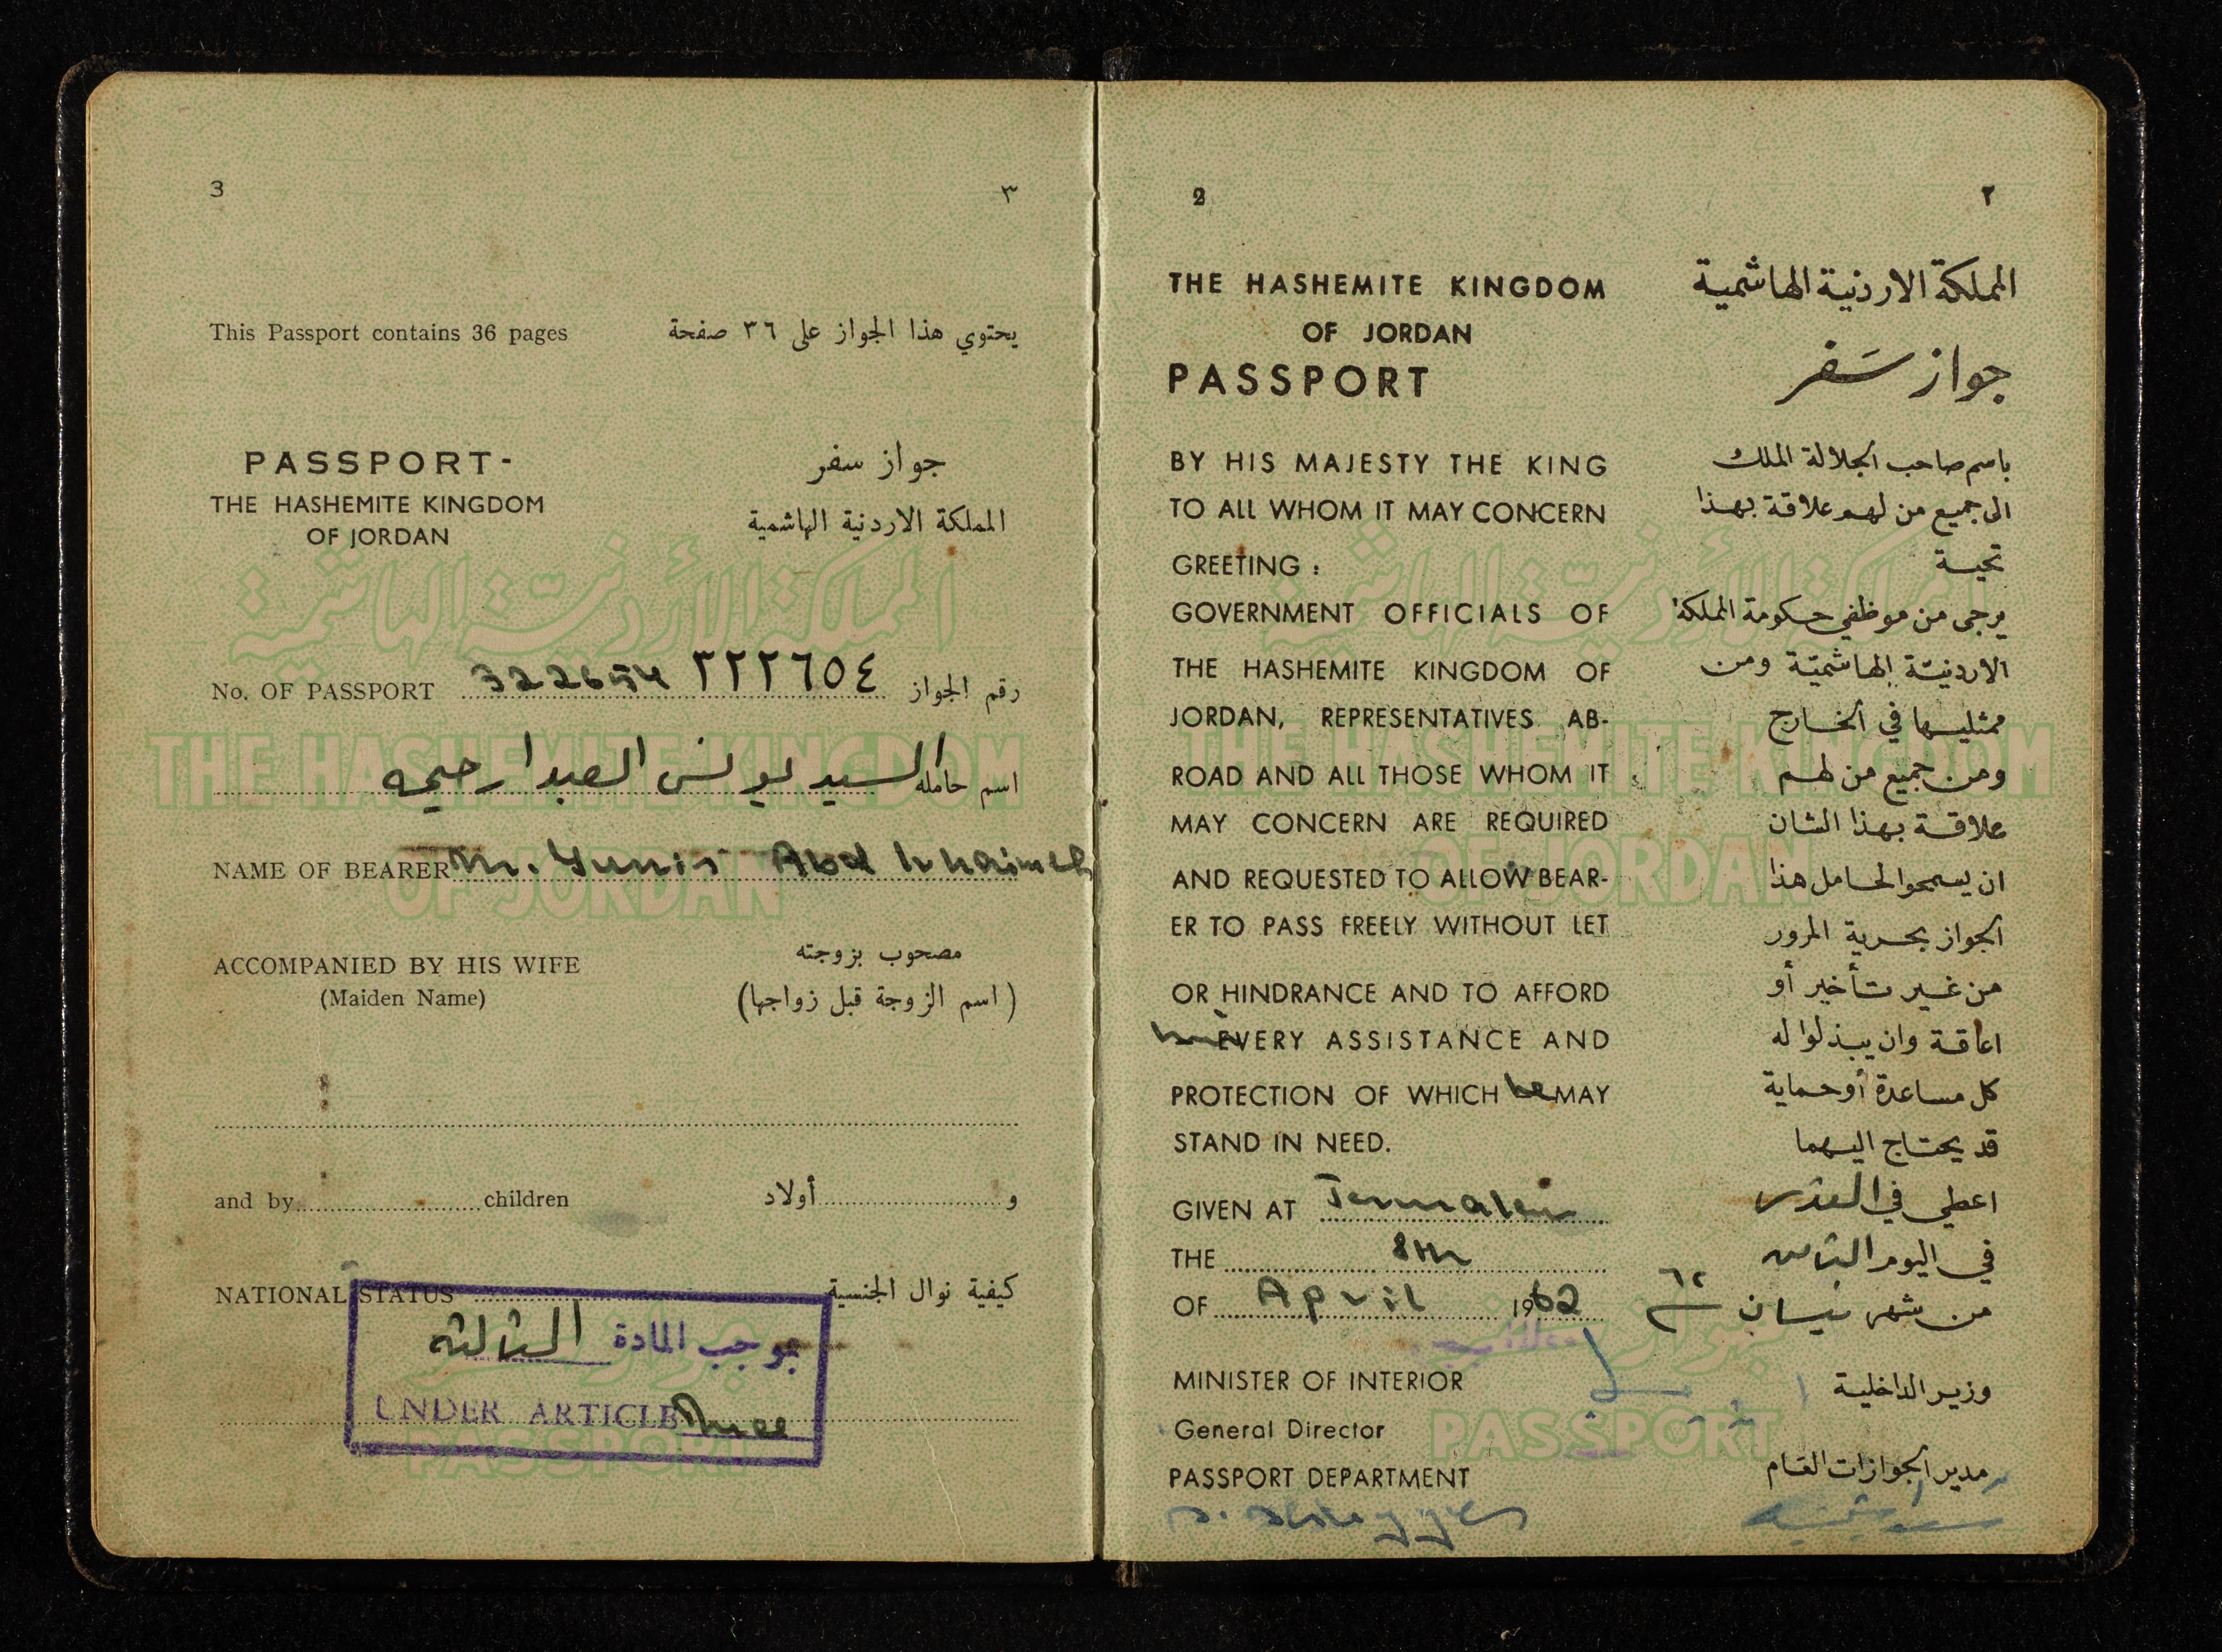 2 ٢
THE HASHEMITE KINGDOM
OF JORDAN
PASSPORT
BY HIS MAJESTY THE KING
TO ALL WHOM IT MAY CONCERN
GREETING :
GOVERNMENT OFFICIALS OF
THE HASHEMITE KINGDOM OF
JORDAN, REPRESENTATIVES AB-
ROAD AND ALL THOSE WHOM IT
MAY CONCERN ARE REQUIRED
AND REQUESTED TO ALLOW BEAR-
ER TO PASS FREELY WITHOUT LET
OR HINDRANCE AND TO AFFORD
him EVERY ASSISTANCE AND
PROTECTION OF WHICH he MAY
STAND IN NEED.
GIVEN AT Jerusalem
THE 8th
OF April 1962
MINISTER OF INTERIOR
General Director
PASSPORT DEPARTMENT
المملكة الاردنية الهاشمية
جواز سَفر
باسم صاحب الجلالة الملك
الى جميع من لهم علاقة بهذا
تحية
يرجى من موظفي حكومة المملكة
الاردنيّة الهاشميّة ومن
ممثليها في الخارج
ومن جميع من لهم
علاقة بهذا الشان
ان يسمحوا لحامل هذا
الجواز بحرية المرور
من غير تأخير أو
اعاقة وان يبذلوا له
كل مساعدة أو حماية
قد يحتاج اليهما
اعطي في القدس
في اليوم الثامن
من شهر نيسان سنة ٦٢
وزير الداخلية
مدير الجوازات العام
3 ٣
This Passport contains 36 pages يحتوي هذا الجواز على ٣٦ صفحة
PASSPORT-
THE HASHEMITE KINGDOM
OF JORDAN
جواز سفر
المملكة الاردنية الهاشمية
المملكة الأردنيّة الهاشمية
No. OF PASSPORT 322654 ٣٢٢٦٥٤ رقم الجواز
THE HASHEMITE KINGDOM
اسم حامله السيد يونس العبد ارحيمه
NAME OF BEARER Mr. Yunis Abd Irhaimeh
OF JORDAN
ACCOMPANIED BY HIS WIFE مصحوب بزوجته
(Maiden Name) (اسم الزوجة قبل زواجها)
and by children و أولاد
NATIONAL STATUS كيفية نوال الجنسية
بموجب المادة الثالثه
UNDER ARTICLE Three
جواز سفر
PASSPORT
المملكة الأردنيّة الهاشمية
THE HASHEMITE KINGDOM
OF JORDAN
جواز سفر
PASSPORT